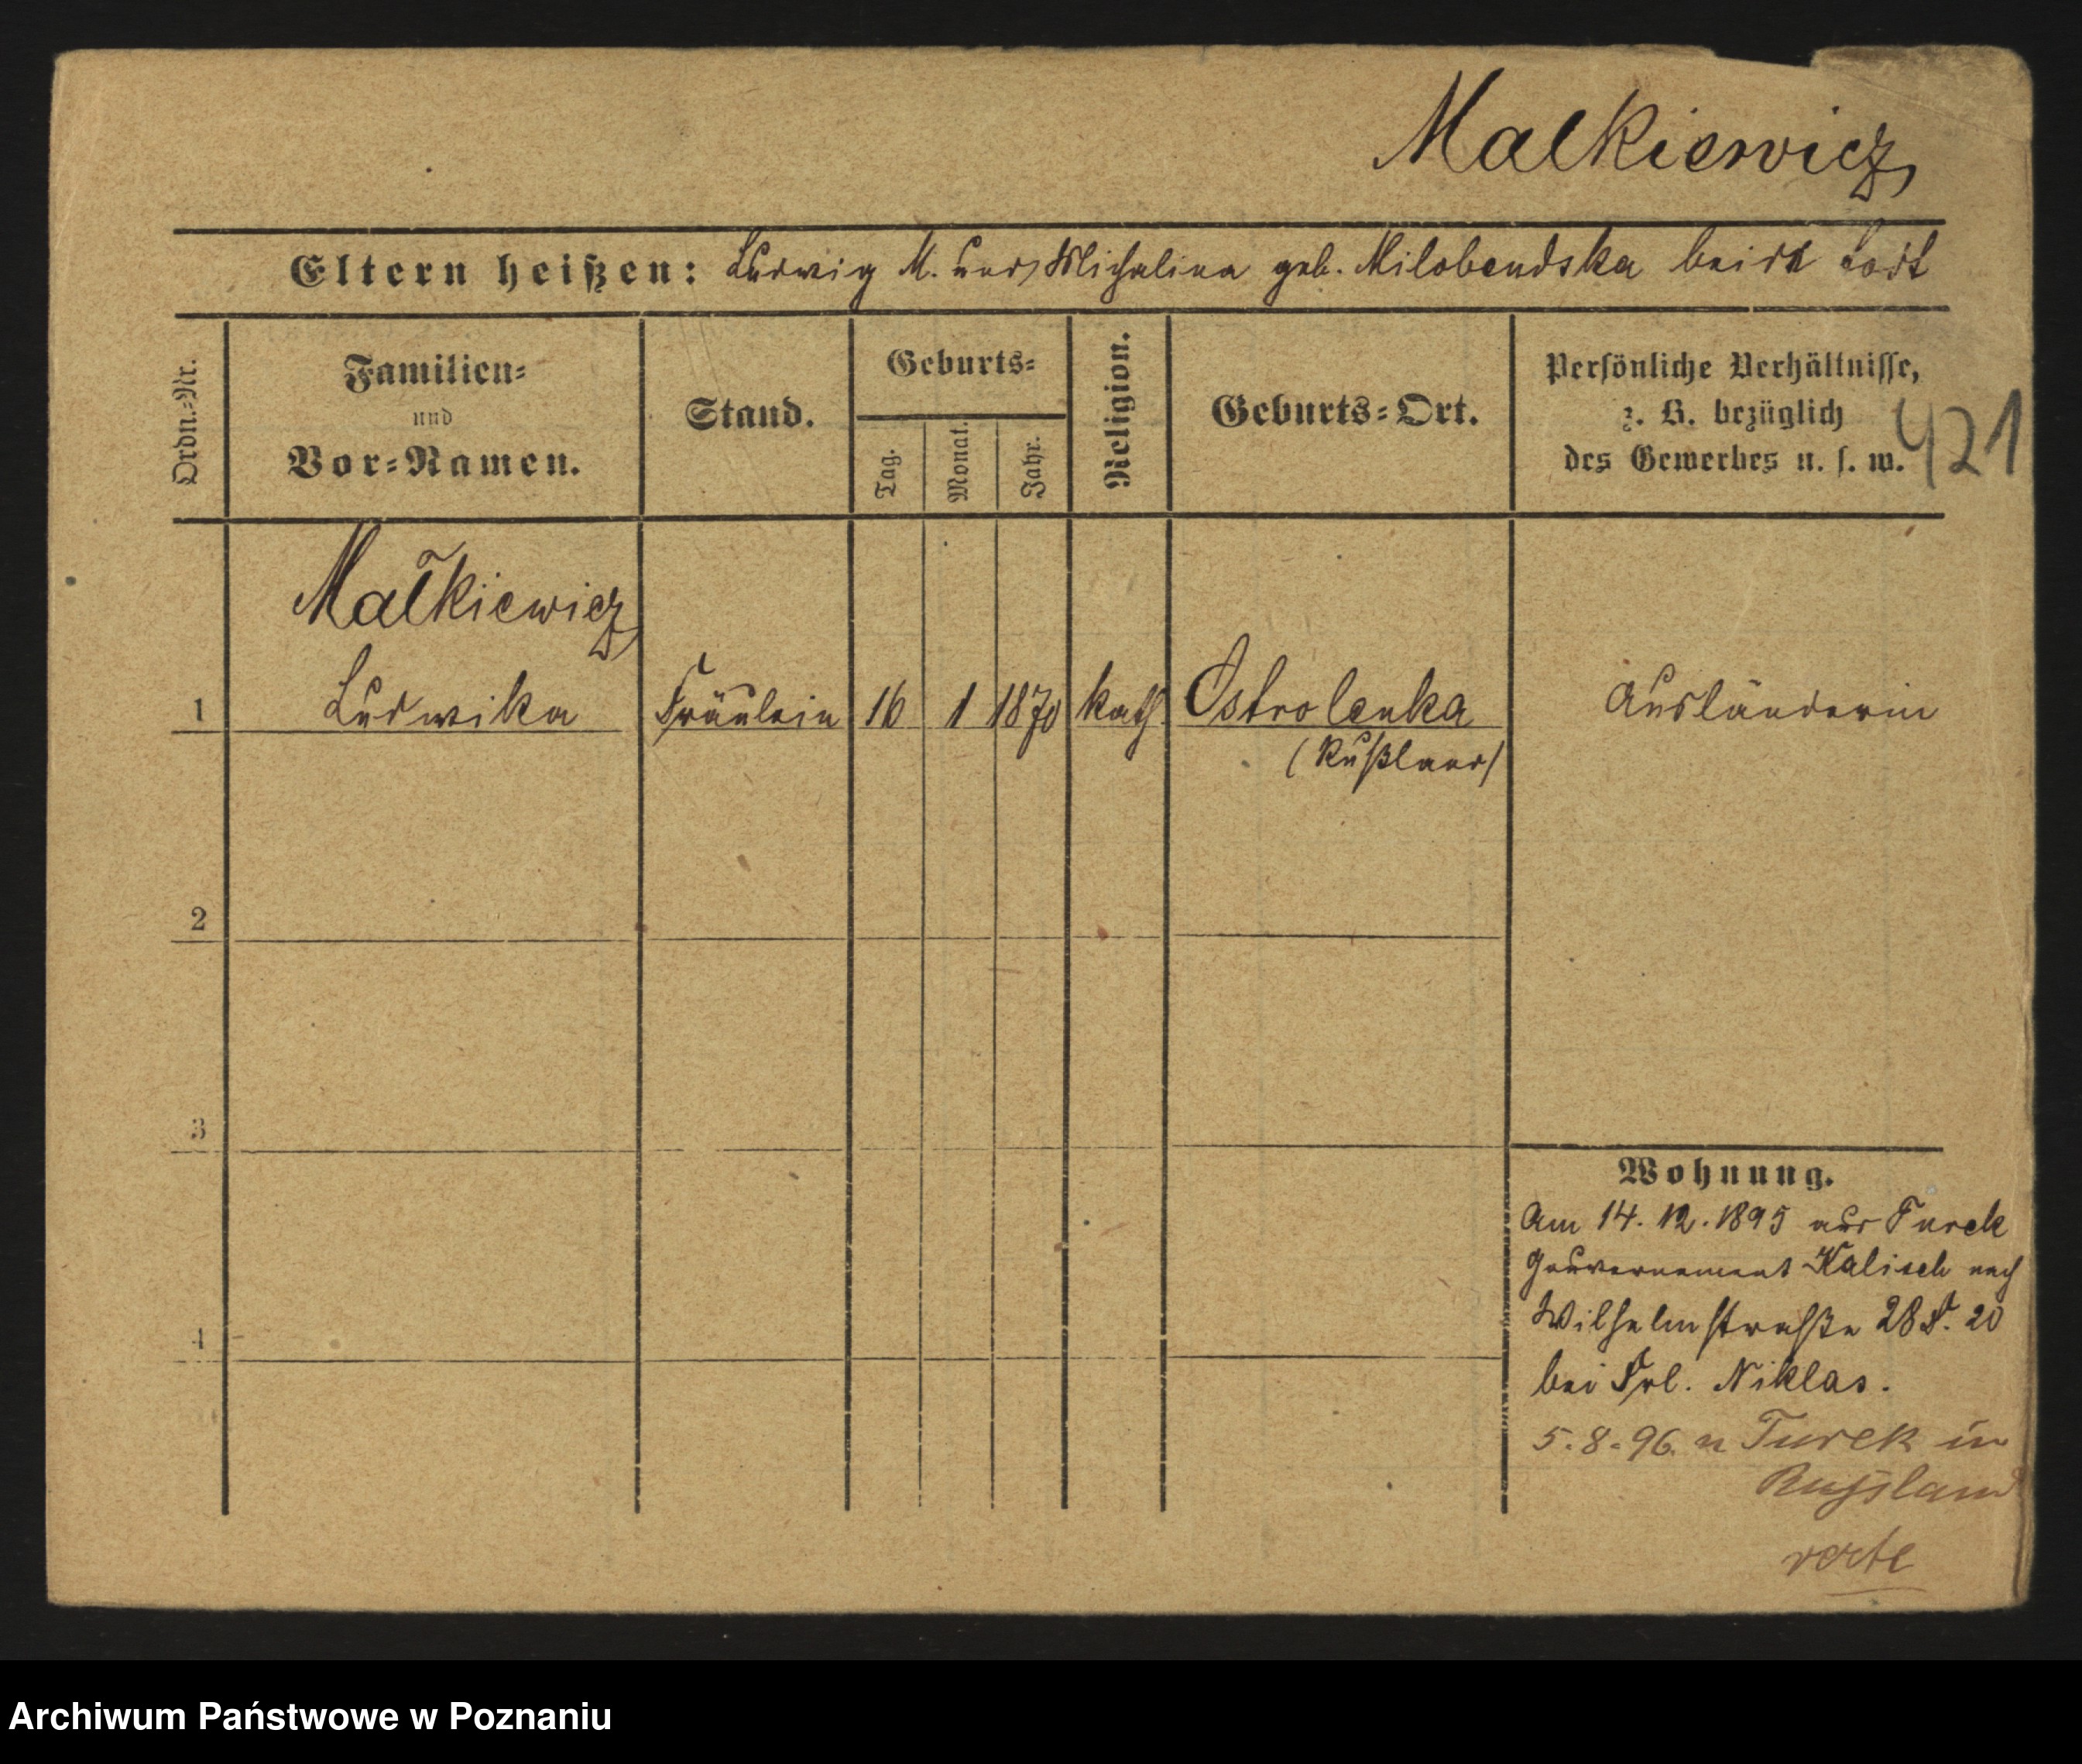 Malkiewicz
Eltern heißen: Ludwig M. und Michalina geb. Milobendska beide todt
Ordn.-Nr.
Familien-
und
Vor-Namen.
Stand.
Geburts-
Tag.
Monat.
Jahr.
Religion.
Geburts-Ort.
Persönliche Verhältnisse,
z. B. bezüglich
des Gewerbes u. s. w.
421
Małkiewicz
1 Ludwika Fräulein 16 1 1870 kath. Ostrolenka Ausländerin
(Rußland)
2
3
Wohnung.
Am 14. 12. 1895 aus Turek
Gouvernement Kalisch nach
Wilhelmstraße 28 F. 20
4
bei Frl. Niklas.
5.8.96. n Turek in
Russland
verte
Archiwum Państwowe w Poznaniu